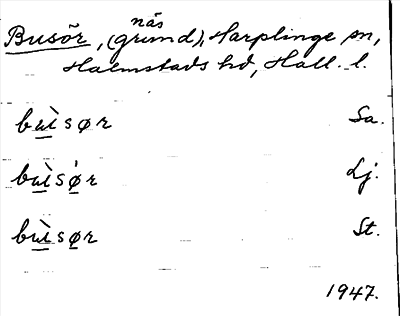 Busör, (grund), Harplinge sn,
näs
Halmstads hd, Hall. l.
bùsør Sa.
bùsǿr Lj.
bùsør St.
1947.